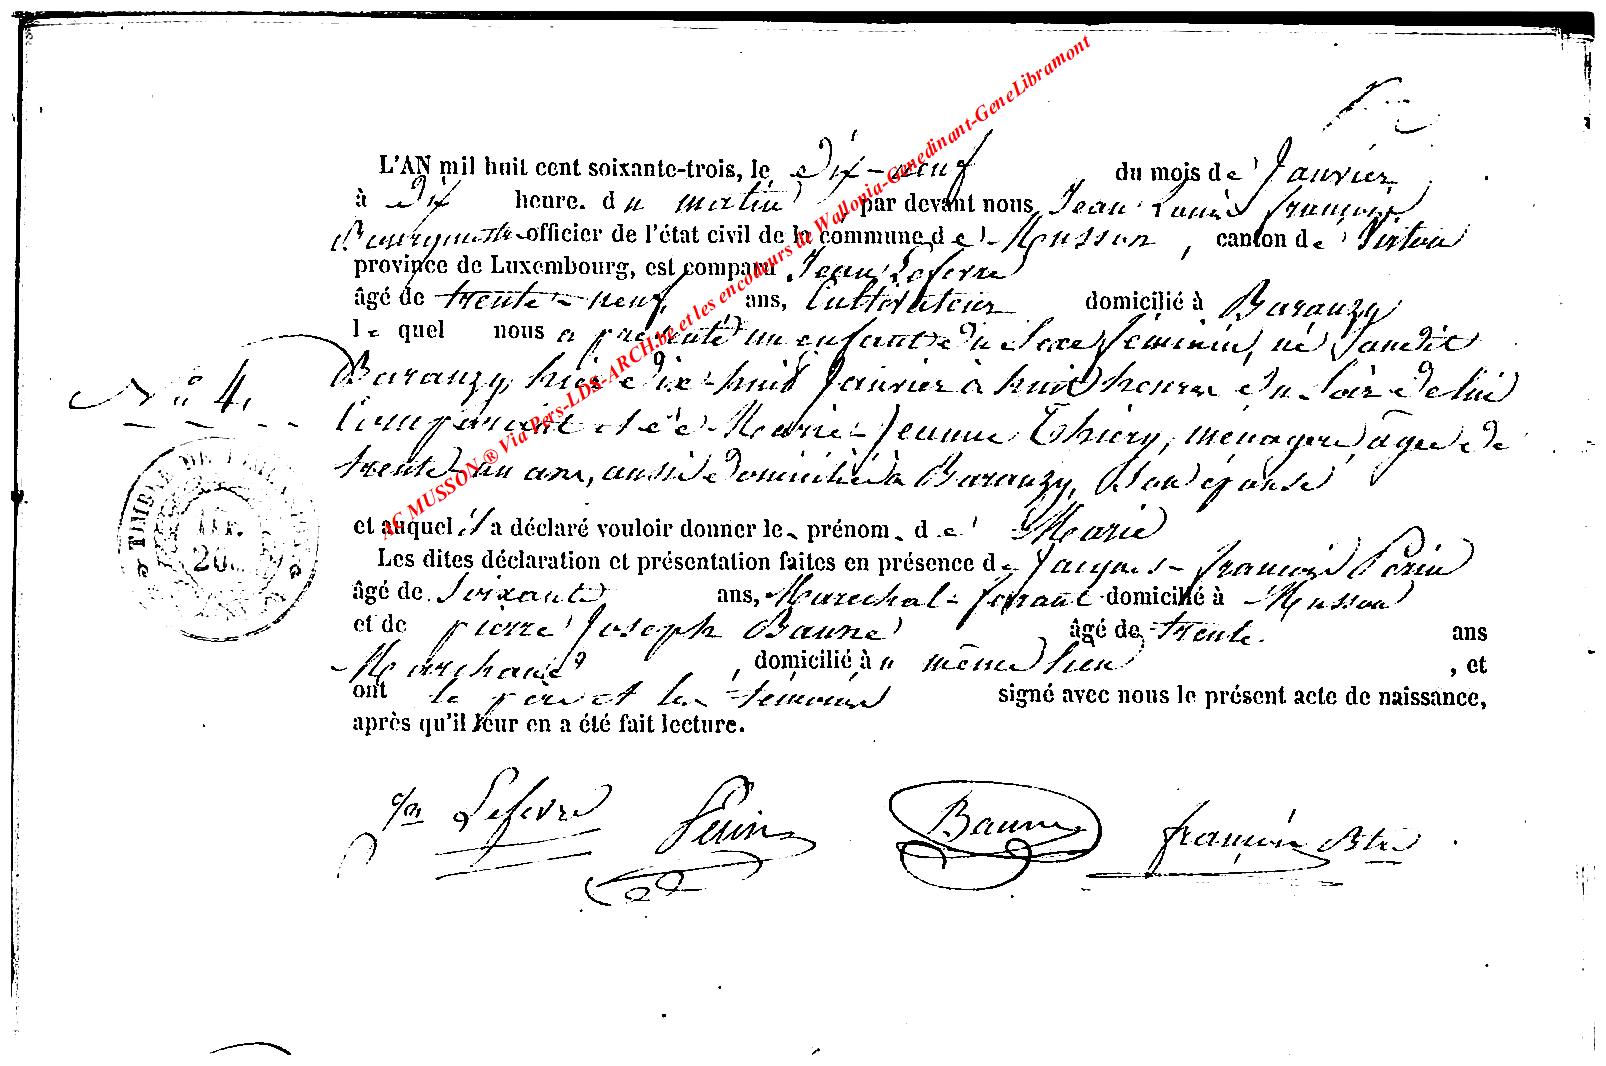 L'AN mil huit cent soixante-trois, le Dix-neuf du mois de Janvier
à Dix heure. du matin par devant nous Jean Louis françois
Bourgmestre officier de l'état civil de la commune de Musson, canton de Virton
province de Luxembourg, est comparu Jean Lefevre
âgé de trente-neuf ans, Cultivateur domicilié à Baranzy
le quel nous a présenté un enfant du Sexe féminin, né
Baranzy, hier Dix-huit Janvier à huit heures du Soir de lui
Comparant et de Marie-Jeanne Thiery, ménagère, âgée de
trente-un ans, aussi domicilié à Baranzy, Son épouse
et auquel il a déclaré vouloir donner le prénom de Marie
Les dites déclaration et présentation faites en présence de Jacques-françois Perin
âgé de Soixante ans, Marechal-ferrant domicilié à Musson
et de pierre Joseph Baune âgé de trente ans
Marchand, domicilié à même lieu, et
ont le père et les témoins signé avec nous le présent acte de naissance,
après qu'il leur en a été fait lecture.
N° 4.
TIMBRE
20
Lefevre Perin Baune françois
AC MUSSON ® Via Pers-LDS-ARCH.be et les encodeurs de Wallonia-Genedinant-GeneLibramont